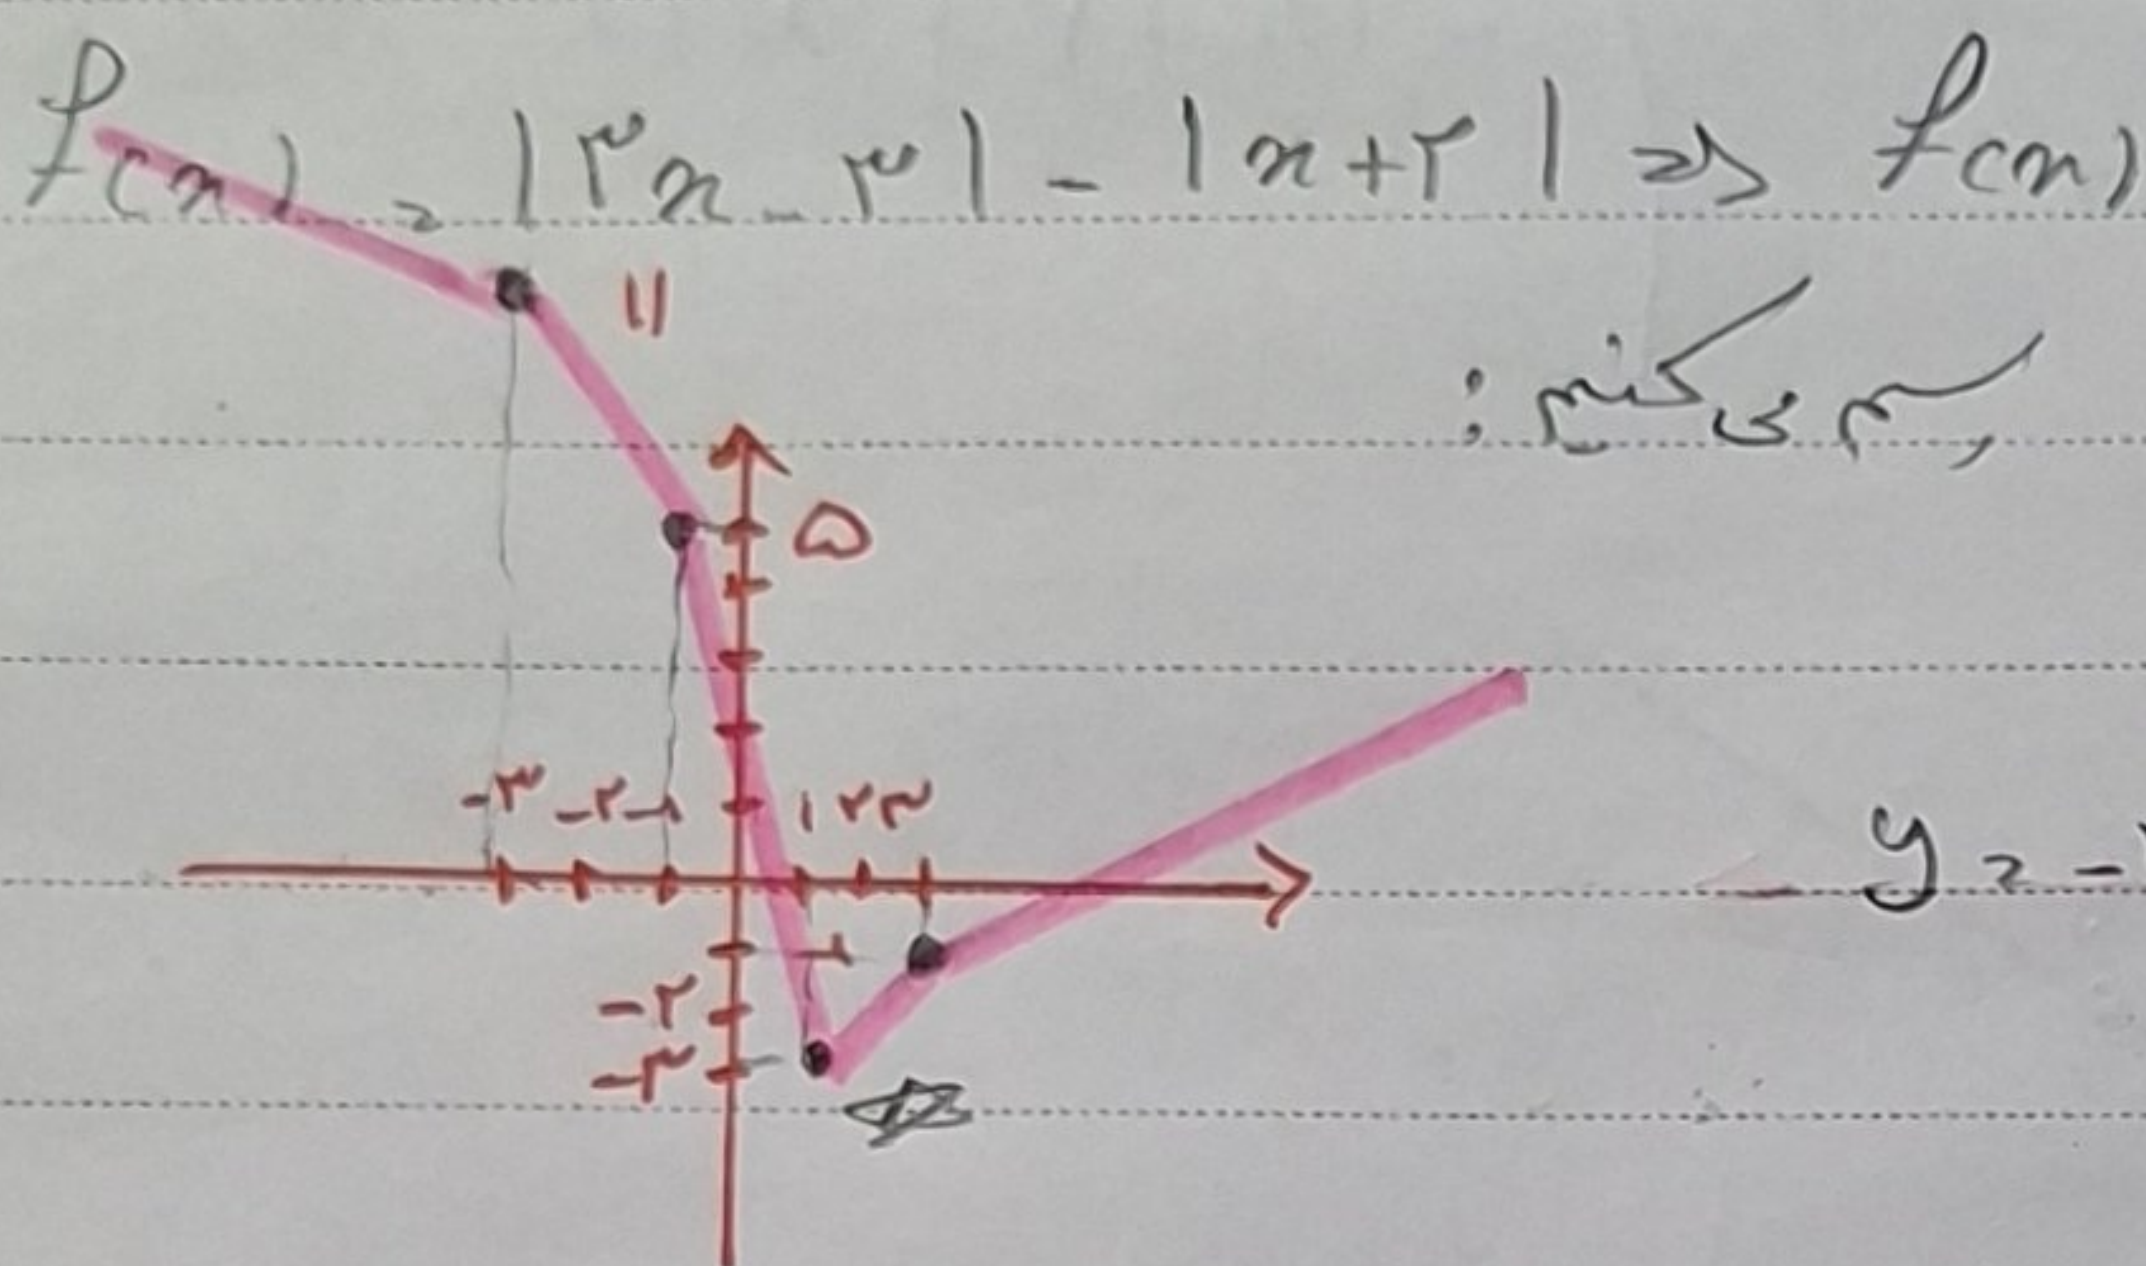 f(x) = |۲x - ۳| - |x + ۲| => f(x)
رسم می کنیم :
۱۱
۵
-۳ -۲ -۱ ۱ ۲ ۳
y = -
-۱
-۲
-۳